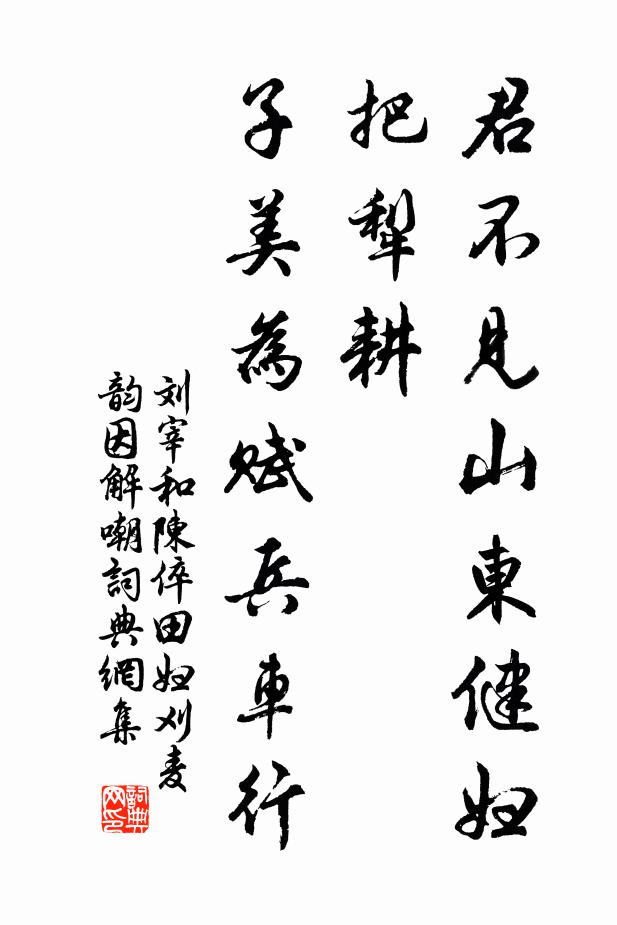 君不見山東健妇
把犁耕
子美為赋兵車行
刘宰和陳倅田妇刈麦
韵因解嘲詞典網集
詞典
网印